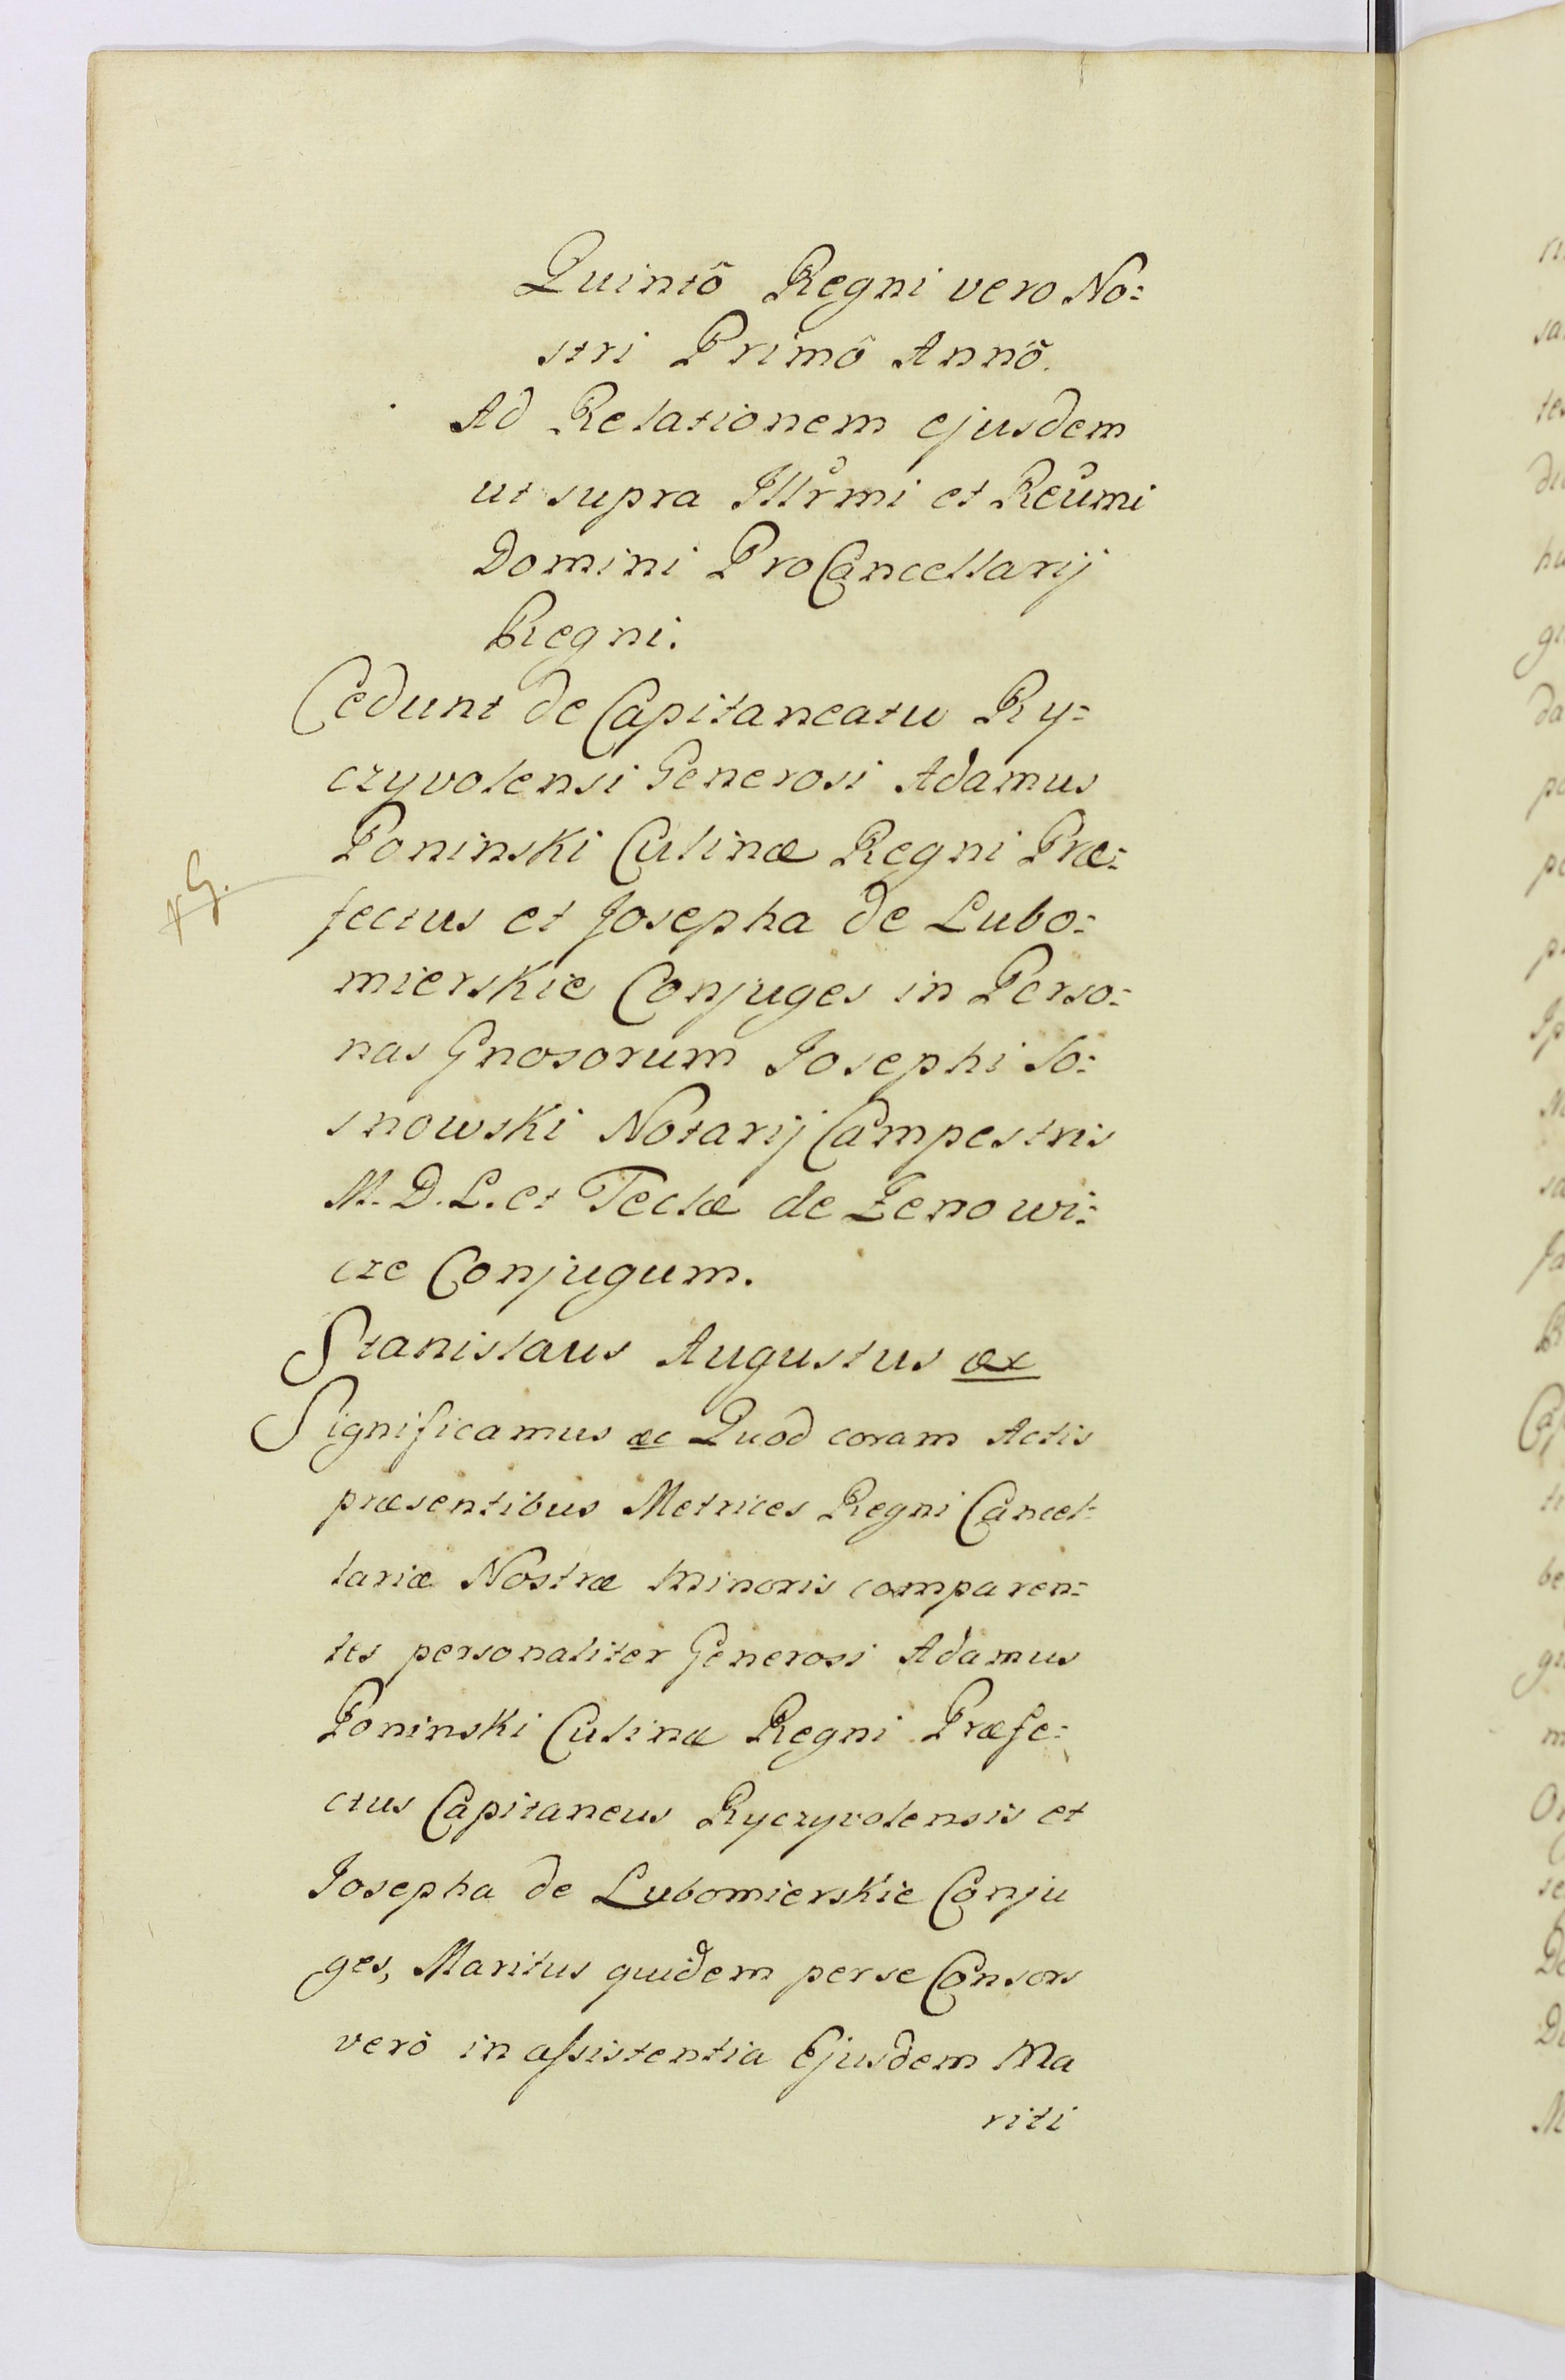 Quintô Regni vero No=
stri Primô Annô.
Ad Relationem ejusdem
ut supra Illrmi et Reumi
Domini ProCancellarij
Regni.
Cedunt de Capitaneatu Ry=
czyvolensi Generosi Adamus
Poninski Culinæ Regni Præ=
fectus et Josepha de Lubo=
mierskie Conjuges in Perso=
nas Gnosorum Josephi So=
snowski Notarij Campestris
M. D. L. et Teclæ de Zenowi=
cze Conjugum.
Stanislaus Augustus &c
Significamus &c Quod coram Actis
præsentibus Metrices Regni Cancel=
lariæ Nostræ Minoris comparen=
tes personaliter Generosi Adamus
Poninski Culinæ Regni Præfe=
ctus Capitaneus Ryczyvolensis et
Josepha de Lubomierskie Conju
ges, Maritus quidem per se Consors
verò in assistentia Ejusdem Ma
riti